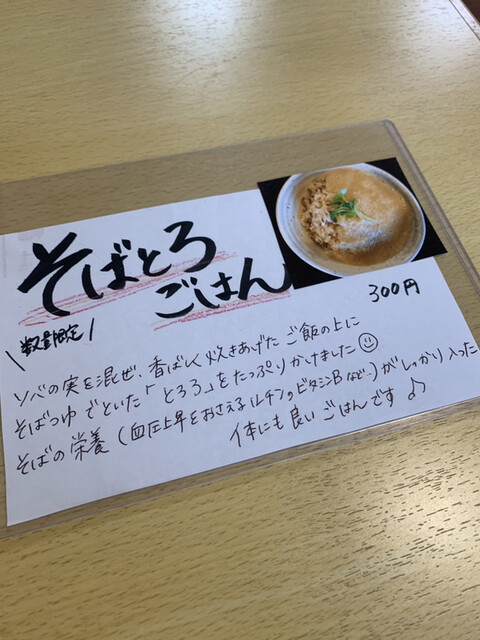 そばとろ
ごはん
\数量限定/
300円
ソバの実を混ぜ、香ばしく炊きあげたご飯の上に
そばつゆでといた「とろろ」をたっぷりかけました☺
そばの栄養(血圧上昇をおさえるルチンやビタミンBなど…)がしっかり入った
体にも良いごはんです♪